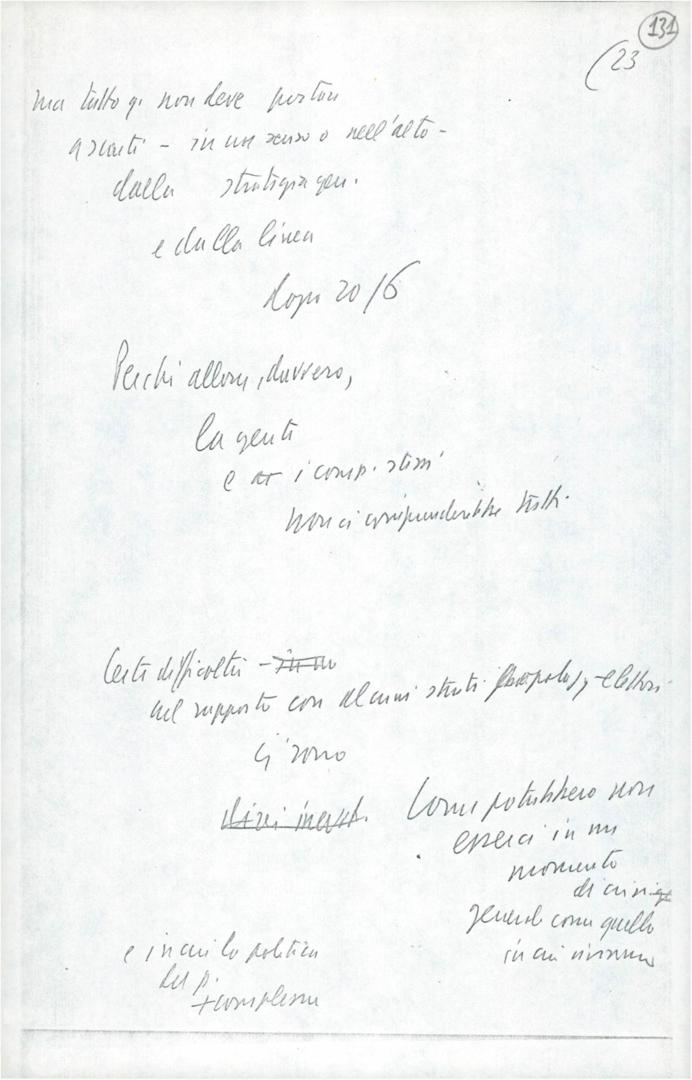 131
(23
ma tutto q. non deve portarci
a scarti – in un senso o nell'altro –
dalla strategia gen.
e dalla linea
dopo 20/6
Perché allora, davvero,
la gente
e i comp. stessi
non ci comprenderebbe tutti.
Certe difficoltà –
nel rapporto con alcuni strati elettori
ci sono
Come potrebbero non
esserci in un
momento
di crisi
generale come quello
in cui viviamo
e in cui la politica
del p.
+ complessa